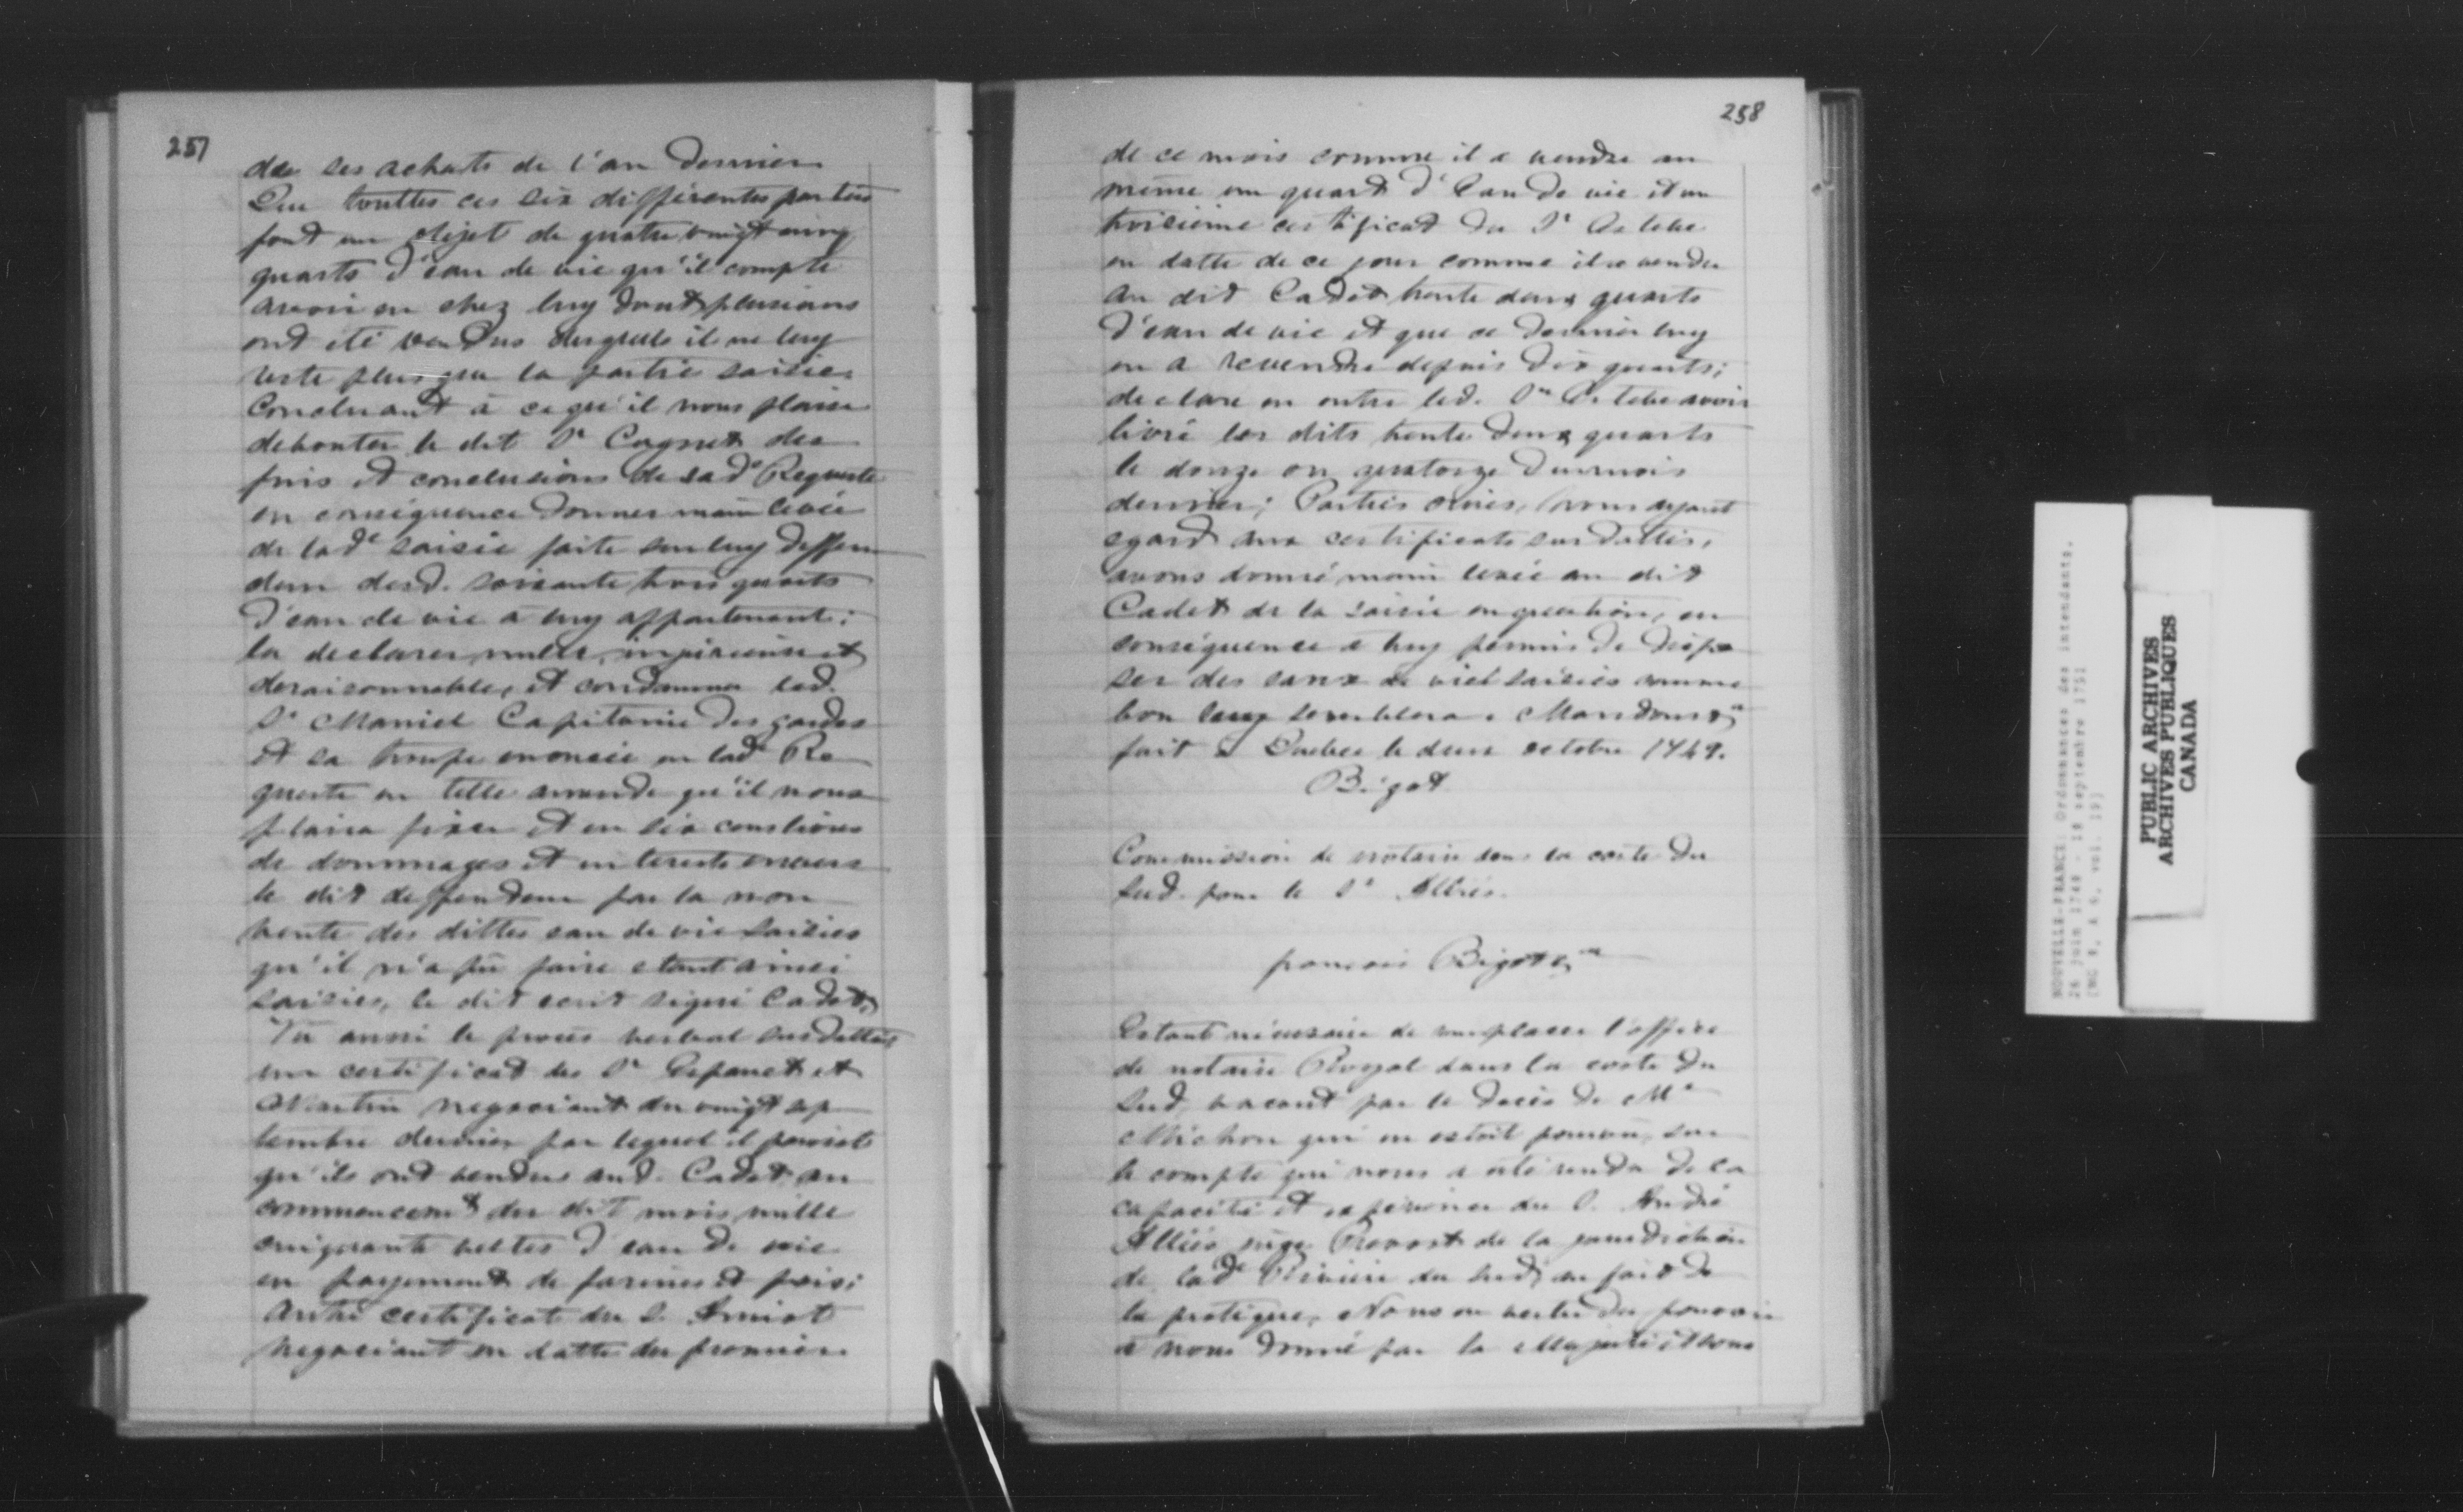 257
des ses achats de l'an dernier
Que touttes ces six differentes parties
font un objet de quatre vingt cinq
quarts d'eau de vie qu'il compte
avoir eu chez luy dont plusieurs
ont été vendus desquels il ne luy
reste plus que la partie saisie.
Concluant à ce qu'il nous plaise
debouter le dit Sr Cugnet des
fins et conclusions de sad. Requeste
en conséquence donner main levée
de lad. saisie faite sur luy deffen
deur desd. soixante trois quarts
d'eau de vie a luy appartenant;
la declarer nulle, injurieuse et
deraisonnable, et condamner led.
Sr Capitaine des gardes
et sa troupe enoncée en lad. Re
queste en telle amende qu'il nous
plaira fixer et en six cens livres
de dommages et interests envers
le dit deffendeur par la non
vente des dittes eau de vie saisies
qu'il n'a pû faire etant ainsi
saisies, le dit ecrit signé Cadet,
Vû aussi le procès verbal susdatté,
un certificat des Srs et
Martin negociant du vingt sep
tembre dernier par lequel il paroist
qu'ils ont vendus aud. Cadet au
commencemt du dit mois mille
cinquante veltes d'eau de vie
en payement de farines et pois;
autre certificat du S. Amiot
negociant en datte du premier
258
de ce mois comme il a vendu au
même un quart d'Eau de vie et un
troisième certificat du Sr
en datte de ce jour comme il a vendu
au dit Cadet trente deux quarts
d'eau de vie et que ce dernier luy
en a revendu depuis dix quarts;
declare en outre led. Sr avoir
livré les dits trente deux quarts
le douze ou quatorze du mois
dernier; Parties ouies, nous ayant
egard aux certificats sus dattés,
avons donné main levée au dit
Cadet de la saisie en question, en
conséquence a luy permis de dispo
ser des eaux de vie saisies comme
bon luy semblera. Mandons &a
fait à Quebec le deux octobre 1749.
Bigot
Commission de notaire dans la coste du
Sud pour le Sr Alliés.
françois Bigot &a
Estant nécessaire de remplacer l'office
de notaire Royal dans la coste du
Sud, vacant par le deces de Me
Michon qui en estoit pourvu, sur
le compte qui nous a été rendu de la
capacité et experience du S. André
Alliés juge Prevost de la jurisdiction
de lad. Rivière du Sud, au fait de
la pratique, Nous en vertu du pouvoir
a nous donné par sa Majesté avons
NOUVELLE-FRANCE: Ordonnances des intendants.
26 juin 1749 - 18 septembre 1751
(MG 8, A 6, vol. 19)
PUBLIC ARCHIVES
ARCHIVES PUBLIQUES
CANADA